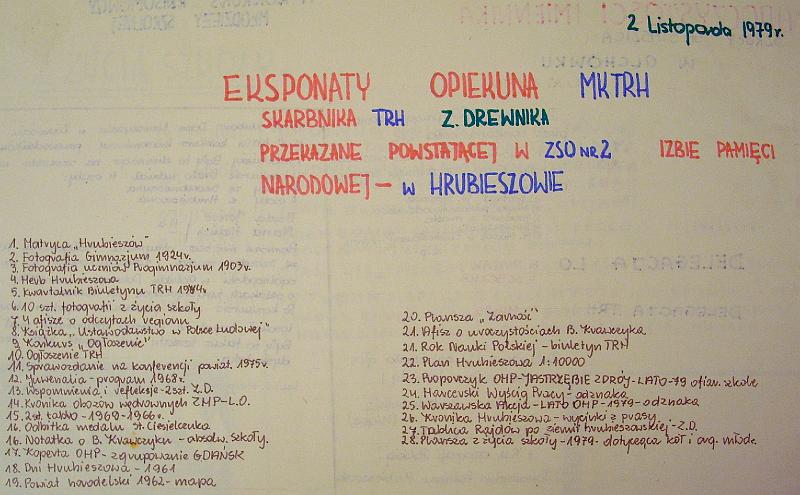 2 Listopada 1979r.
EKSPONATY OPIEKUNA MKTRH
SKARBNIKA TRH Z. DREWNIKA
PRZEKAZANE POWSTAJĄCEJ W ZSO NR 2 IZBIE PAMIĘCI
NARODOWEJ – W HRUBIESZOWIE
1. Matryca „Hrubieszów"
2. Fotografia Gimnazjum 1924r.
3. Fotografia uczniów Progimnazjum 1903r.
4. Herb Hrubieszowa
5. Kwartalnik Biuletynu TRH
6. 10 szt. fotografii z życia szkoły
7. 4 afisze o odczytach regionu
8. Książka „Ustawodawstwo w Polsce Ludowej"
9. Konkurs „Ogłoszenie"
10. Ogłoszenie TRH
11. Sprawozdanie na konferencji powiat. 1975r.
12. Juwenalia - program 1968r.
13. Wspomnienia i refleksje - 2szt. Z.D.
14. Kronika obozów wędrownych ZMP-L.O.
15. 2szt. tablo - 1969-1966r.
16. Odbitka medalu st. Ciesielczuka
16. Notatka o B. Krawczyku - absolw. szkoły.
17. Koperta OHP - zgrupowanie GDAŃSK
18. Dni Hrubieszowa - 1961
19. Powiat horodelski 1962 - mapa
20. Plansza „Zawiść"
21. Afisz o uroczystościach B. Krawczyka
21. Rok Nauki Polskiej - biuletyn TRH
22. Plan Hrubieszowa 1:10000
23. Proporczyk OHP - JASTRZĘBIE ZDRÓJ - LATO - 79 ofiar. szkole
24. Harcerski Wyścig Pracy - odznaka
25. Warszawska Akcja - LATO OHP - 1979 - odznaka
26. Kronika Hrubieszowa - wycinki z prasy
27. Tablica Rajdów po ziemi hrubieszowskiej - Z.D.
28. Plansza z życia szkoły - 1979 - dotycząca kół i org. młodz.